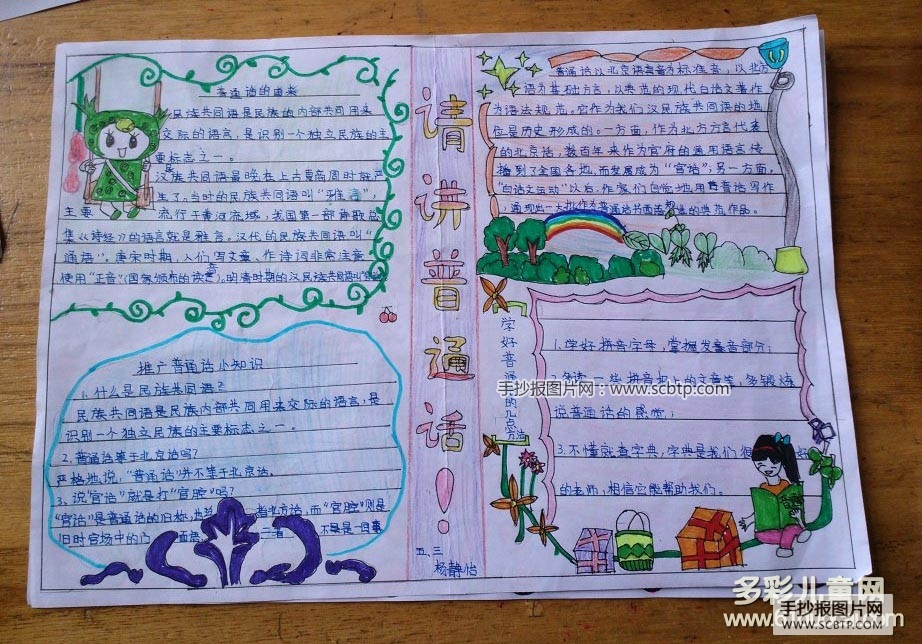 普通话的由来
民族共同语是民族的内部共同用来
交际的语言,是识别一个独立民族的主
要标志之一。
汉民族共同语最晚在上古夏商周时就产
生了,当时的民族共同语叫“雅言”,
主要 流行于黄河流域,我国第一部诗歌总
集《诗经》的语言就是雅言。汉代的民族共同语叫“
通语”。唐宋时期,人们写文章、作诗词非常注意
使用“正音”(国家颁布的读音)。明清时期的汉民族共同语叫“官话
推广普通话小知识
1.什么是民族共同语?
民族共同语是民族内部共同用来交际的语言,是
识别一个独立民族的主要标志之一。
2.普通话等于北京话吗?
严格地说,“普通话”并不等于北京话。
3、说“官话”就是打“官腔”吗?
“官话”是普通话的旧称,也 指北方话,而“官腔”则是
旧时官场中的 二者 不是一回事
请讲普通话!
五、三
杨静怡
普通话以北京语音为标准音,以北方
话为基础方言,以典范的现代白话文著作
为语法规范。它作为我们汉民族共同语的地
位是历史形成的。一方面,作为北方方言代表
的北京话,数百年来作为官府的通用语言传
播到了全国各地,而发展成为“官话”;另一方面,
“白话文运动”以后,作家们自觉地用普通话写作
,涌现出一大批作为普通话书面语 的典范作品。
学好普通话的几点方法
1.学好拼音字母,掌握发音部分;
2.多读一些拼音报上的文章等,多锻炼
说普通话的感觉;
3.不懂就查字典,字典是我们很 好
的老师,相信它能帮助我们。
手抄报图片网:www.scbtp.com
多彩儿童网
手抄报图片网
www.scbtp.com